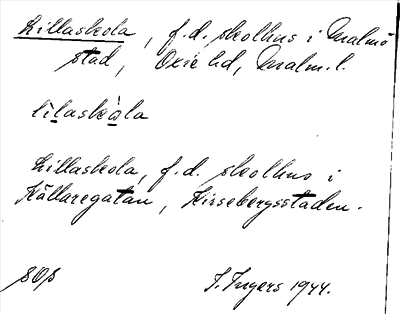 Lillaskola, f.d. skolhus i Malmö
stad, Oxie hd, Malm. l.
lìlaskò̱la
Lillaskola, f.d. skolhus i
Källaregatan, Kirsebergsstaden.
I. Ingers 1944.